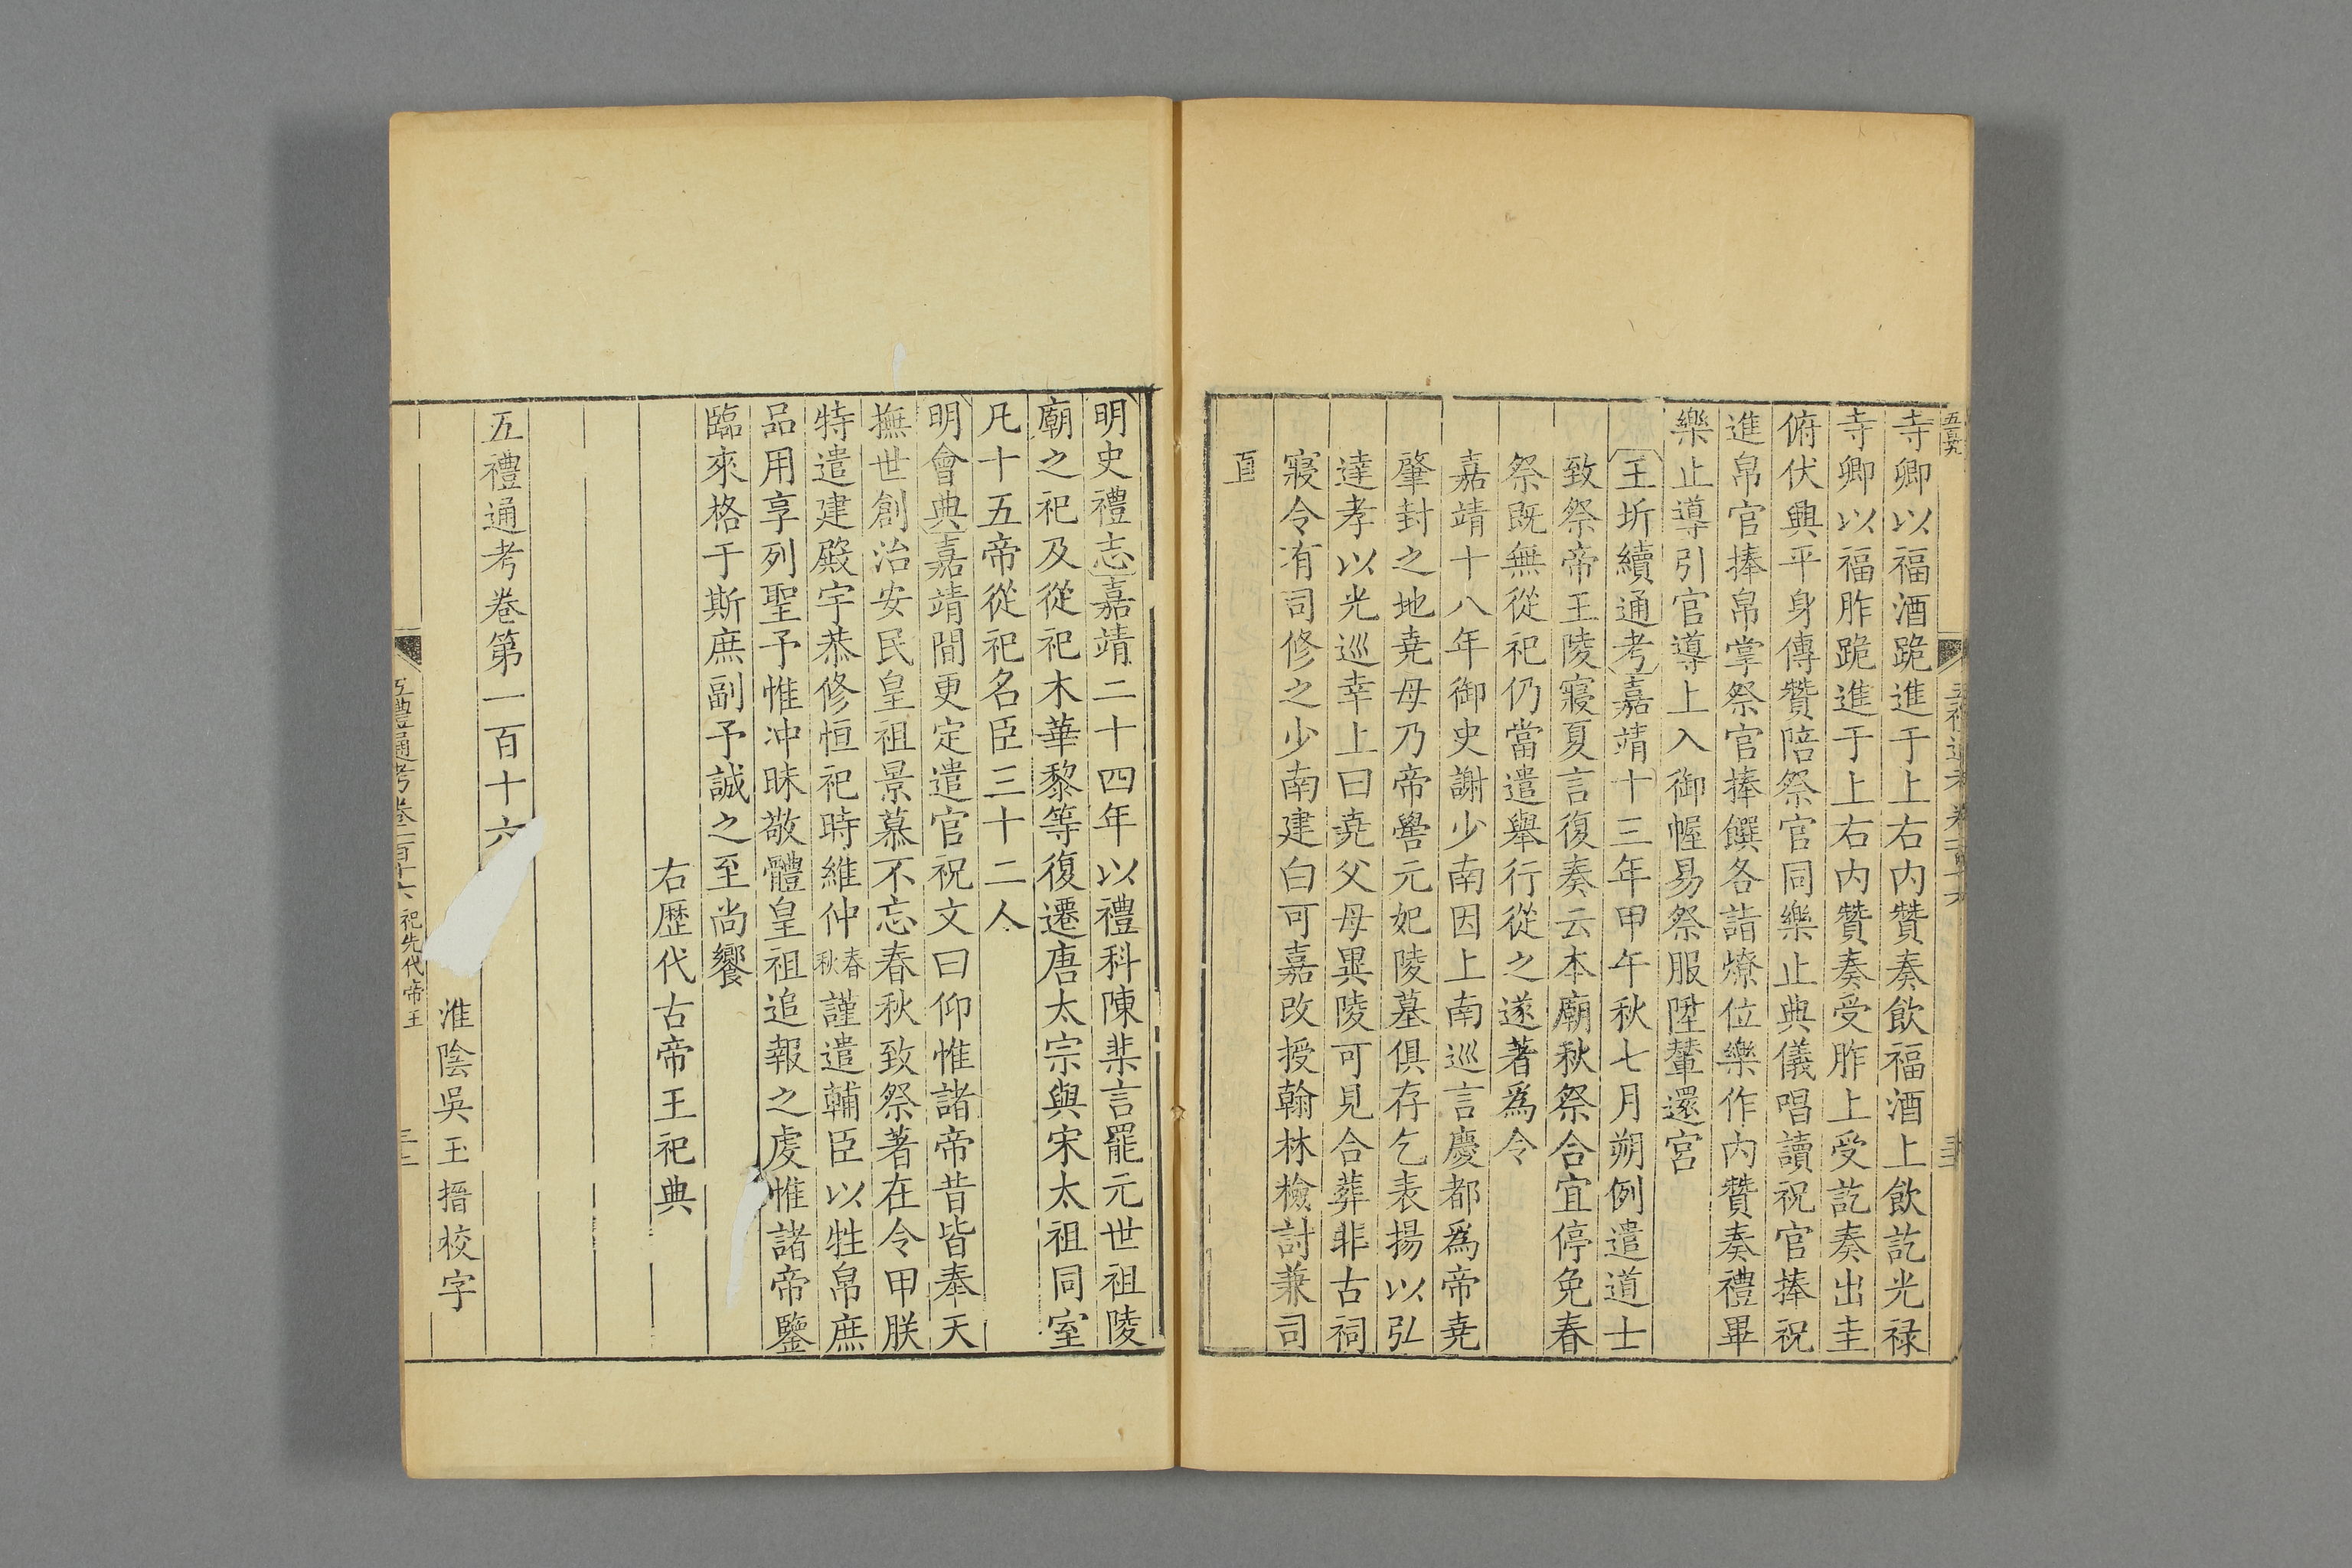 寺卿以福酒跪進于上右内贊奏飲福酒上飲訖光禄
寺卿以福胙跪進于上右内贊奏受胙上受訖奏出圭
俯伏興平身傳贊陪祭官同樂止典儀唱讀祝官捧祝
進帛官捧帛掌祭官捧饌各詣燎位樂作内贊奏禮畢
樂止導引官導上入御幄易祭服陞輦還宫
王圻續通考嘉靖十三年甲午秋七月朔例遣道士
致祭帝王陵寢夏言復奏云本廟秋祭合宜停免春
祭既無從祀仍當遣舉行從之遂著爲令
嘉靖十八年御史謝少南因上南巡言慶都爲帝堯
肇封之地堯母乃帝嚳元妃陵墓俱存乞表揚以弘
達孝以光巡幸上曰堯父母異陵可見合葬非古祠
寢令有司修之少南建白可嘉改授翰林檢討兼司
直
明史禮志嘉靖二十四年以禮科陳棐言罷元世祖陵
廟之祀及從祀木華黎等復遷唐太宗與宋太祖同室
凡十五帝從祀名臣三十二人
明會典嘉靖間更定遣官祝文曰仰惟諸帝昔皆奉天
撫世創治安民皇祖景慕不忘春秋致祭著在令甲朕
特遣建殿宇恭修恒祀時維仲春秋謹遣輔臣以牲帛庶
品用享列聖予惟冲昧敬體皇祖追報之虔惟諸帝鑒
臨來格于斯庶副予誠之至尚饗
右歴代古帝王祀典
五禮通考卷第一百十六
淮陰吳玉搢校字
五禮通考卷一百十六 祀先代帝王